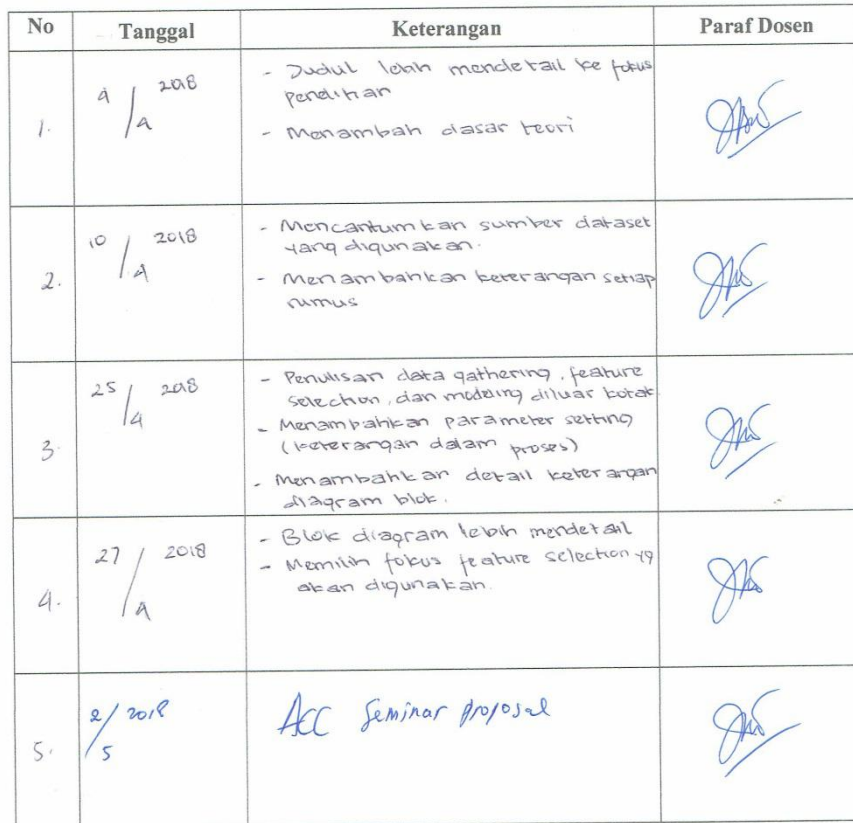 No Tanggal Keterangan Paraf Dosen
1. 4/4 2018
- Judul lebih mendetail ke fokus
penelitian
- Menambah dasar teori
2. 10/4 2018
- Mencantumkan sumber dataset
yang digunakan.
- Menambahkan keterangan setiap
rumus
3. 25/4 2018
- Penulisan data gathering, feature
selection, dan modeling diluar kotak
- Menambahkan parameter setting
(keterangan dalam proses)
- Menambahkan detail keterangan
diagram blok.
4. 27/4 2018
- Blok diagram lebih mendetail
- Memilih fokus feature selection yg
akan digunakan.
5. 2/5 2018
ACC Seminar proposal